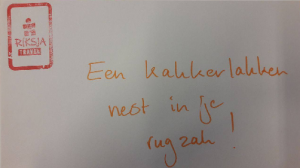 RIKSJA
TRAVEL
Een kakkerlakken
nest in je
rugzak!